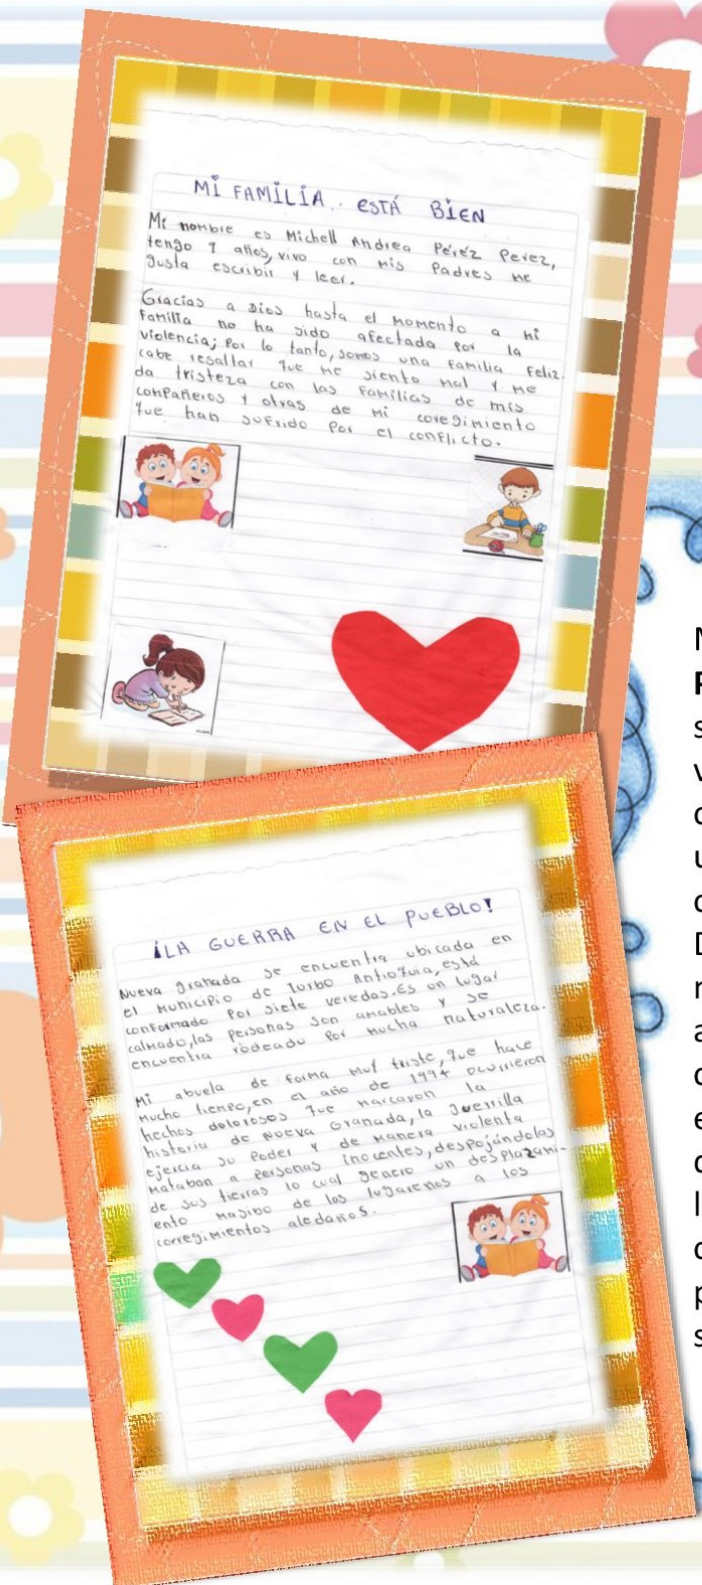 MI FAMILIA.. ESTÁ BIEN
Mi nombre es Michell Andrea Pérez Perez,
tengo 7 años, vivo con mis Padres me
gusta escribir y leer.
Gracias a Dios hasta el momento a mi
familia no ha sido afectada por la
violencia; Por lo tanto, somos una familia Feliz.
cabe resaltar que me siento mal y me
da tristeza con las familias de mis
compañeros y otras de mi coregimiento
que han sufrido por el conflicto.
¡LA GUERRA EN EL PUEBLO!
Nueva granada se encuentra ubicada en
el municipio de Turbo Antioquia, está
conformado por siete veredas. Es un lugar
calmado, las personas son amables y se
encuentra rodeado por mucha naturaleza.
Mi abuela de forma muy triste, que hace
mucho tiempo, en el año de 1994 ocurrieron
hechos dolorosos que marcaron la
historia de Nueva Granada, la guerrilla
ejercia su Poder y de manera violenta
mataban a personas inocentes, despojándolas
de sus tierras lo cual genero un desplazami-
ento masibo de los lugareños a los
corregimientos aledaños.